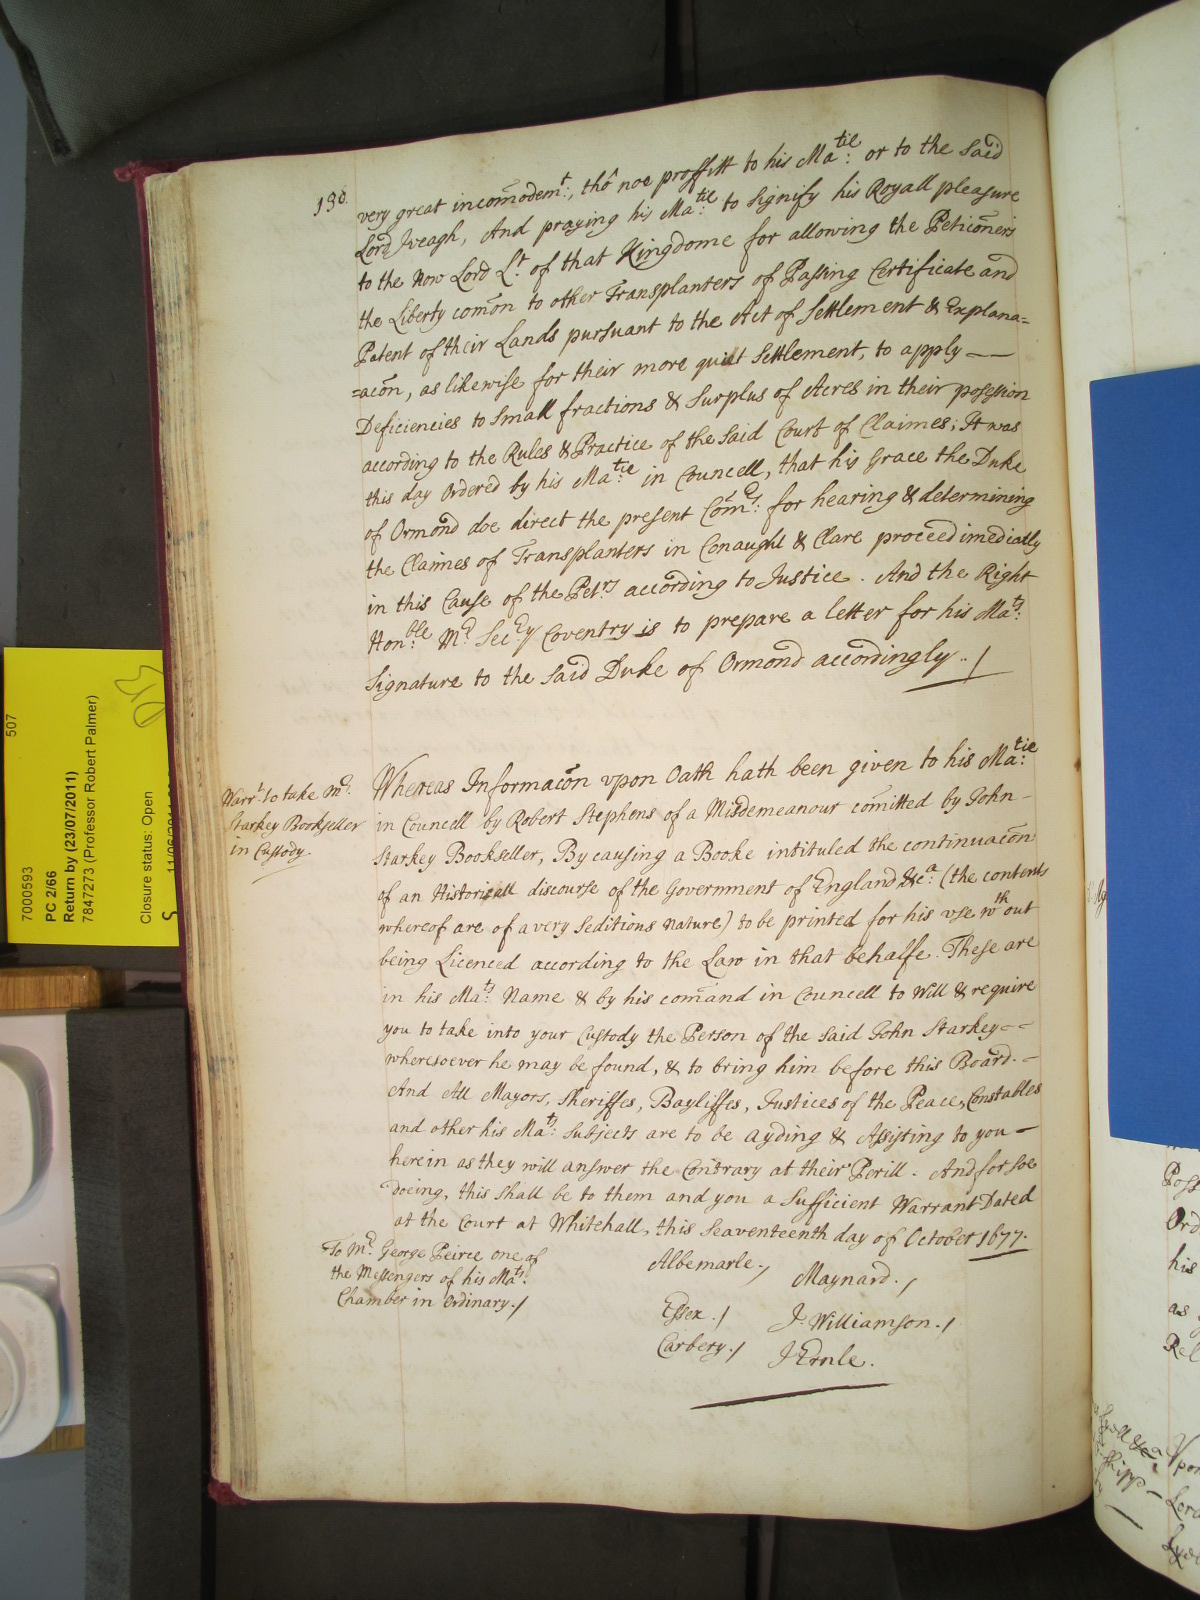 130.
very great incom̄odemt:, thô noe proffitt to his Matie: or to the said
Lord Iveagh, And praying his Matie: to signify his Royall pleasure
to the Now Lord Lt. of that Kingdome for allowing the Peticōners
the Liberty com̄on to other Transplanters of Passing Certificate and
Patent of their Lands pursuant to the Act of Settlement & Explana=
=acōn, as likewise for their more quiet Settlement, to apply
Deficiencies to small fractions & Surplus of Acres in their possession
according to the Rules & Practice of the said Court of Claimes; It was
this day Ordered by his Matie: in Councell, that his Grace the Duke
of Ormond doe direct the present Com̄rs: for hearing & determining
the Claimes of Transplanters in Conaught & Clare proceed imediatly
in this Cause of the Petrs according to Justice. And the Right
Honble: Mr. Secry Coventry is to prepare a letter for his Mats:
Signature to the said Duke of Ormond accordingly./
Warrt. to take Mr.
Starkey Bookseller
in Custody.
Whereas Informacōn vpon Oath hath been given to his Matie:
in Councell by Robert Stephens of a Misdemeanour com̄itted by John
Starkey Bookseller, By causing a Booke intituled the continuacōn
of an Historicall discourse of the Government of England &ca: (the contents
whereof are of a very Seditious nature) to be printed for his vse wthout
being Licenced according to the Law in that behalfe. These are
in his Mats: Name & by his com̄and in Councell to Will & require
you to take into your Custody the Person of the said John Starkey
wheresoever he may be found, & to bring him before this Board.
And All Mayors, Sheriffes, Bayliffes, Justices of the Peace, Constables
and other his Mats: subjects are to be ayding & Assisting to you
herein as they will answer the Contrary at their Perill. And for soe
doeing, this shall be to them and you a Sufficient Warrant Dated
at the Court at Whitehall, this Seaventeenth day of October 1677.
To Mr. George Peirce one of
the Messengers of his Mats:
Chamber in Ordinary./
Albemarle./
Maynard./
Essex./
J. Williamson./
Carbery./
J Ernle.
507
7000593
PC 2/66
Return by (23/07/2011)
7847273 (Professor Robert Palmer)
Closure status: Open
Poss
Ord
his
as
Rel
Vpon
Lord